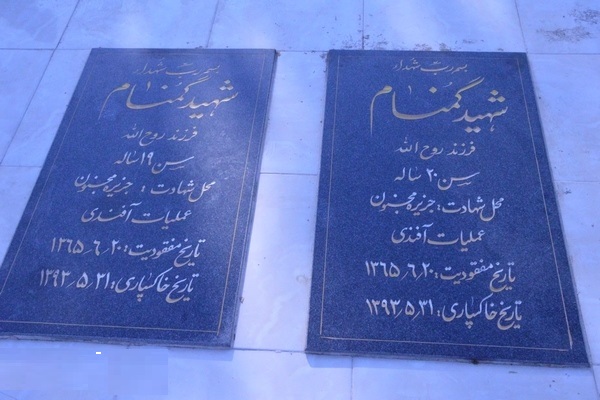 بسم رب شهدا
شهید گمنام
فرزند روح الله
سن ۲۰ ساله
محل شهادت: جزیره مجنون
عملیات آفندی
تاریخ مفقودیت: ۱۳۶۵٫۶٫۲۰
تاریخ خاکسپاری: ۱۳۹۳٫۵٫۳۱
بسم رب شهدا
شهید گمنام
فرزند روح الله
سن ۱۹ ساله
محل شهادت: جزیره مجنون
عملیات آفندی
تاریخ مفقودیت: ۱۳۶۵٫۶٫۲۰
تاریخ خاکسپاری: ۱۳۹۳٫۵٫۳۱